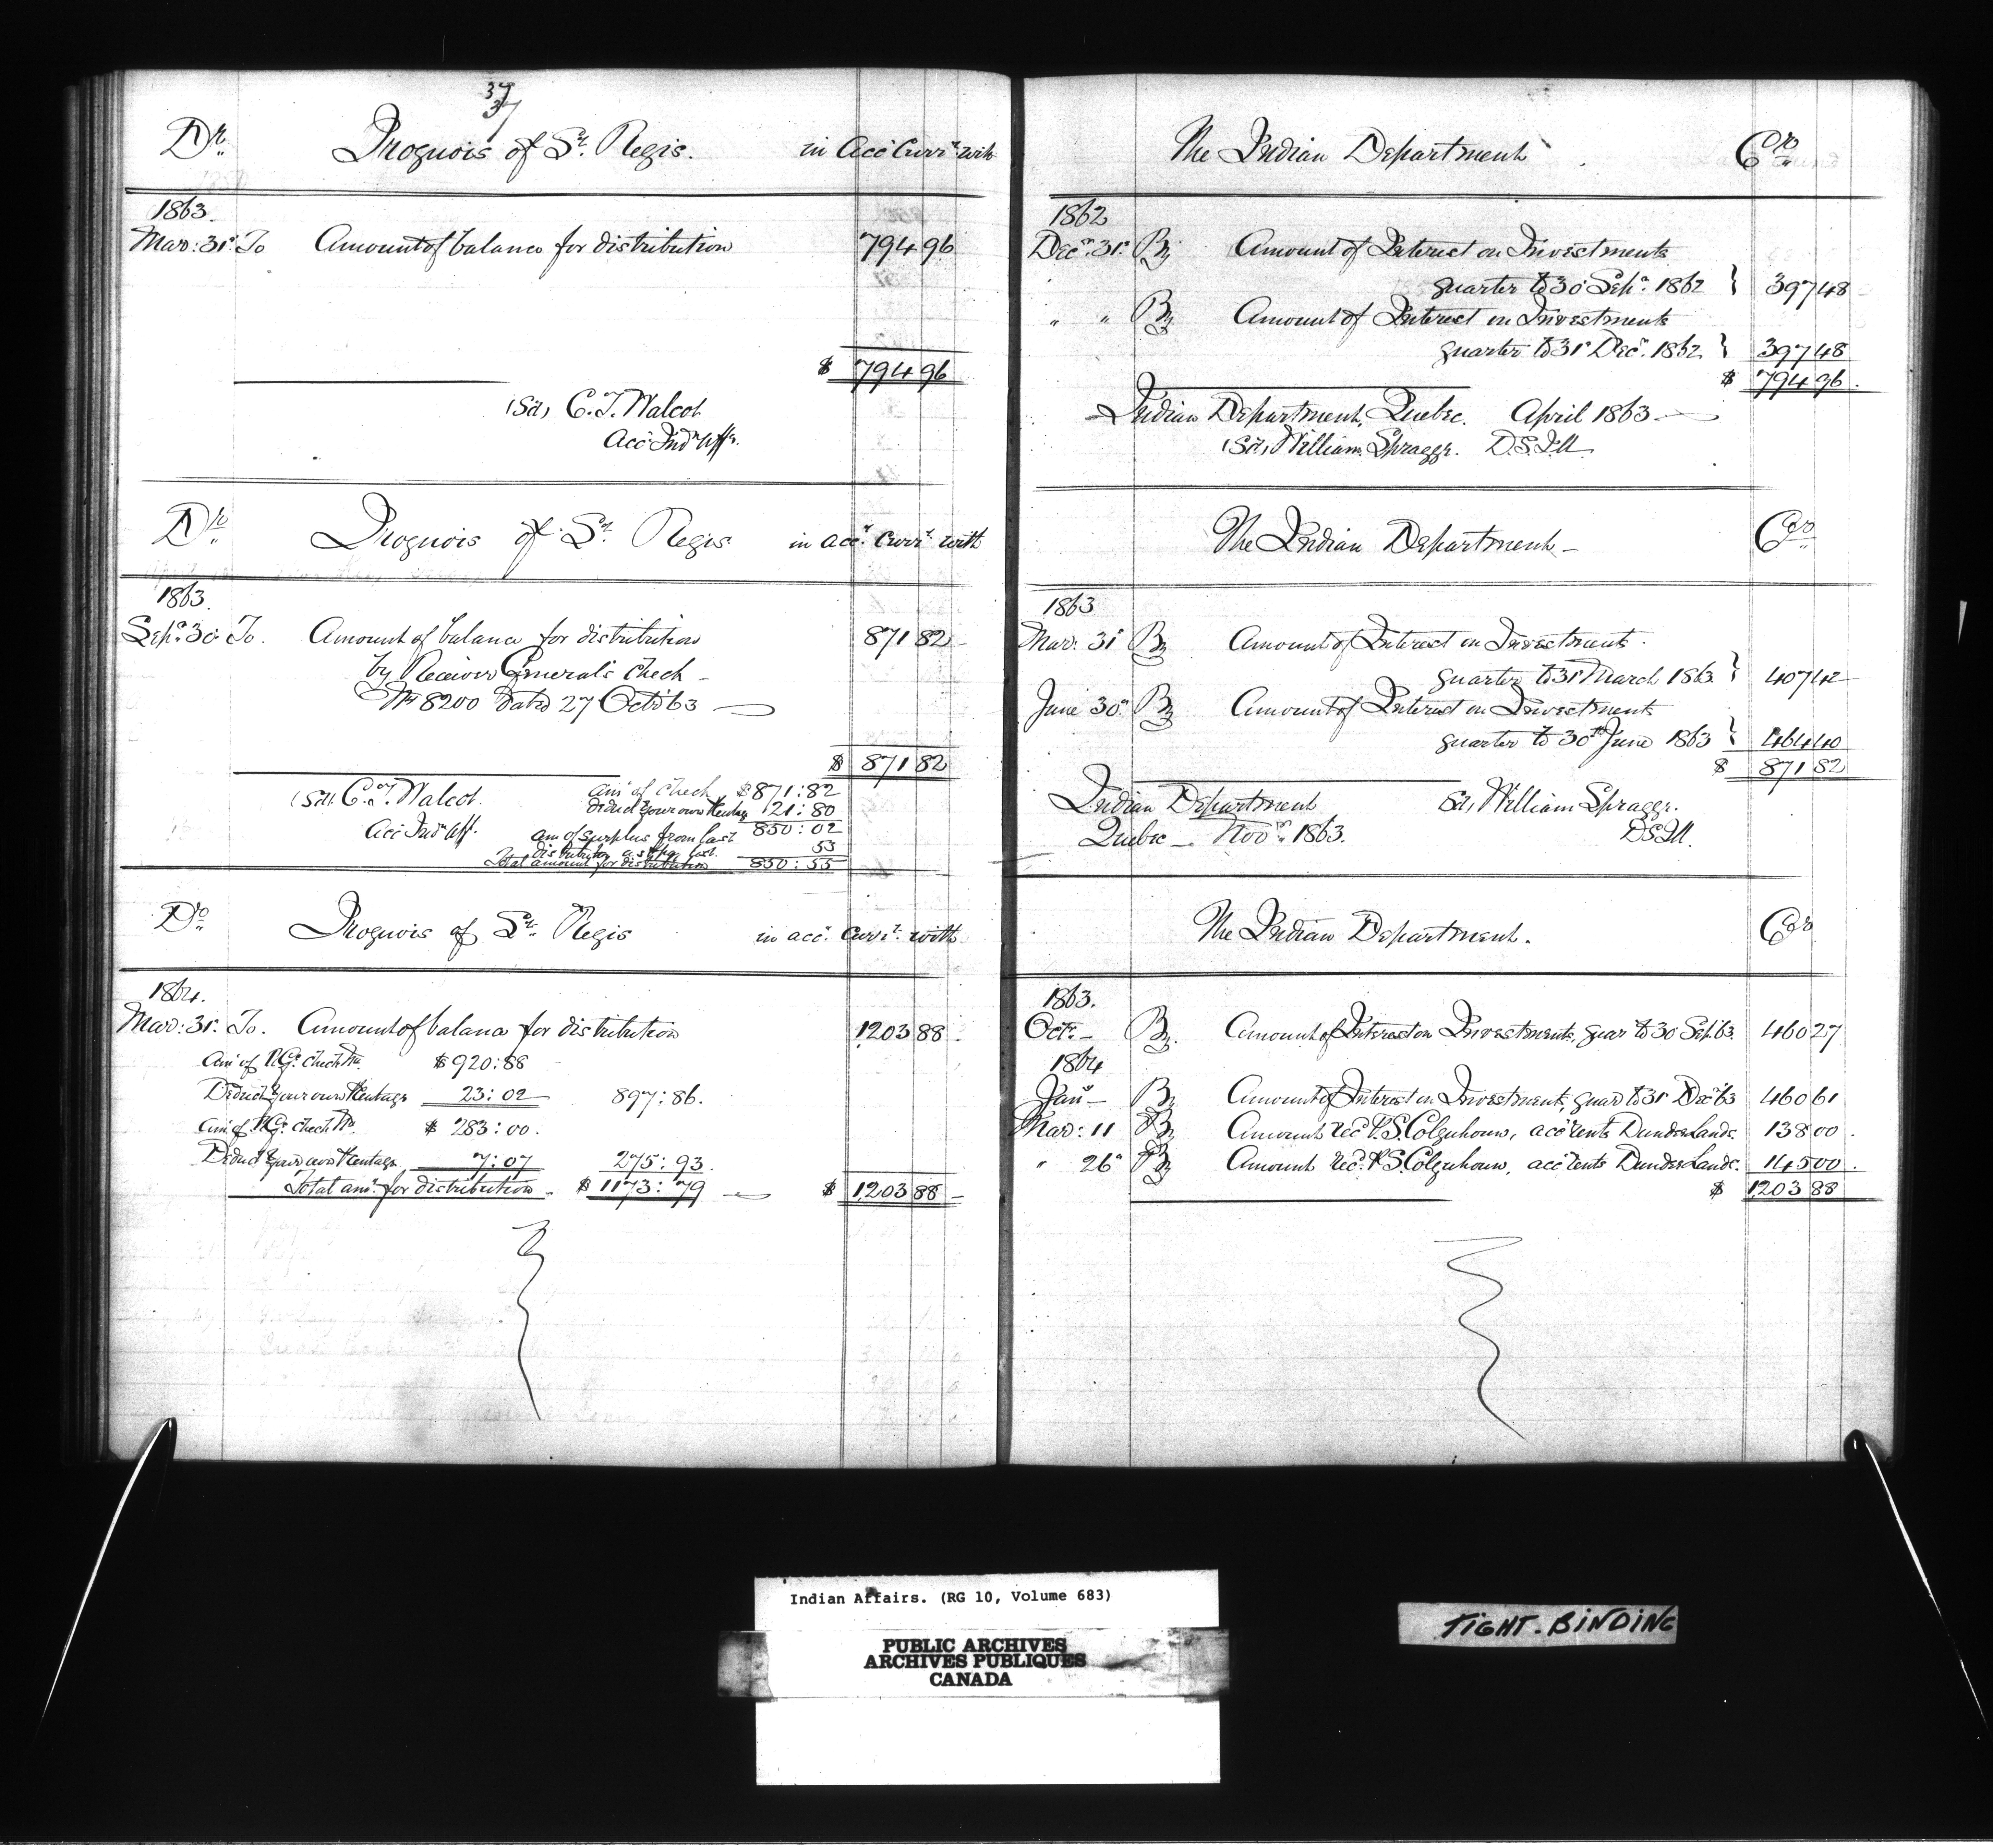 37
37
Dr. Iroquois of St. Regis. in Acct Currt with
1863.
Mar: 31st To Amount of balance for distribution 794 96
$ 794 96
(Sd) C. T. Walcot
Acct Indn Affs.
Dr. Iroquois of St. Regis in acct. Currt. with
1863.
Sepr. 30. To. Amount of balance for distribution 871 82
by Receiver General's Check
No 8200 dated 27 Oct '63
$ 871 82
(Sd). C. T. Walcot. Amt of Check $871:82
Deduct your own 21:80
Acct Indn Aff. 850:02
Am of surplus from last
distribution last. 53
Total amount for distribution 850:55
Dr. Iroquois of St. Regis in acct. Currt. with
1864.
Mar: 31st. To. Amount of balance for distribution 1203 88
Amt of R.G. Check No. $920:88
Deduct your own 23:02 897:86.
Amt of R.G. Check No. $ 283:00.
Deduct your own 7:07 275:93.
Total amt. for distribution $1173:79 $ 1203 88
The Indian Department Cr.
1862
Decr. 31st By Amount of Interest on Investments
quarter to 30 Sepr. 1862 } 397 48
" " By Amount of Interest on Investments
quarter to 31st Decr. 1862 } 397 48
$ 794 96.
Indian Department, Quebec. April 1863
(Sd) William Spragge. D.S.I.A.
The Indian Department Cr.
1863
Mar: 31st By Amount of Interest on Investments
quarter to 31st March 1863 } 407 42
June 30th By Amount of Interest on Investments
quarter to 30th June 1863 } 464 40
$ 871 82
Indian Department Sd, William Spragge.
Quebec Novr. 1863. D.S.I.A.
The Indian Department. Cr
1863.
Octr. By. Amount of Interest on Investments, quar to 30 Sep '63 460 27
1864
Jany By Amount of Interest on Investments, quar to 31st Dec 63 460 61
Mar: 11 By Amount rec S. Colquhoun, acct rents Dundee Lands. 138 00.
" 26th By Amount rec. S. Colquhoun, acct rents Dundee Lands. 145 00.
$ 1203 88
Indian Affairs. (RG 10, Volume 683)
PUBLIC ARCHIVES
ARCHIVES PUBLIQUES
CANADA
TIGHT-BINDING